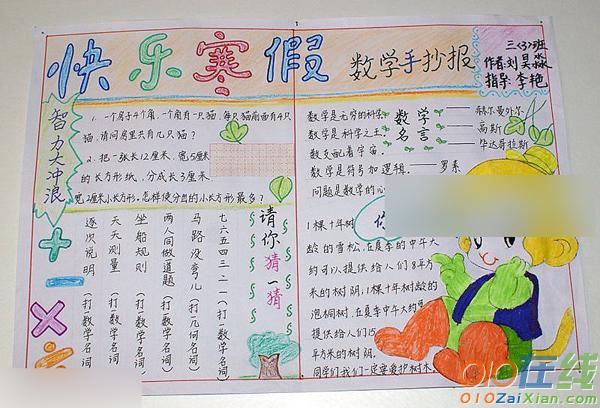 快乐寒假
数学手抄报
三<3>班
作者:刘昊淼
指导:李艳
智力大冲浪
1. 一个房子4个角,一个角有一只猫,每只猫前面有4只
猫,请问房里共有几只猫?
2. 把一张长12厘米,宽5厘米
的长方形纸,分成长3厘米,
宽2厘米小长方形,怎样使分出的小长方形最多?
请你猜一猜
七六五四三二一(打一数学名词)
马路没弯儿(打一几何名词)
两人同做道题(打一数学名词)
坐船规则(打一数学名词)
天天测量(打一数学名词)
逐次说明(打一数学名词)
数学名言
数学是无穷的科学——赫尔曼外尔
数学是科学之王——高斯
数支配着宇宙。——毕达哥拉斯
数学是符号加逻辑。——罗素
问题是数学的心
1棵十年树
龄的雪松,在夏季的中午大
约可以提供给人们8平方
米的树阴;1棵十年树龄的
泡桐树,在夏季中午大约
提供给人们15
平方米的树阴。
同学们我们一定要爱护树木
010在线
010ZaiXian.com